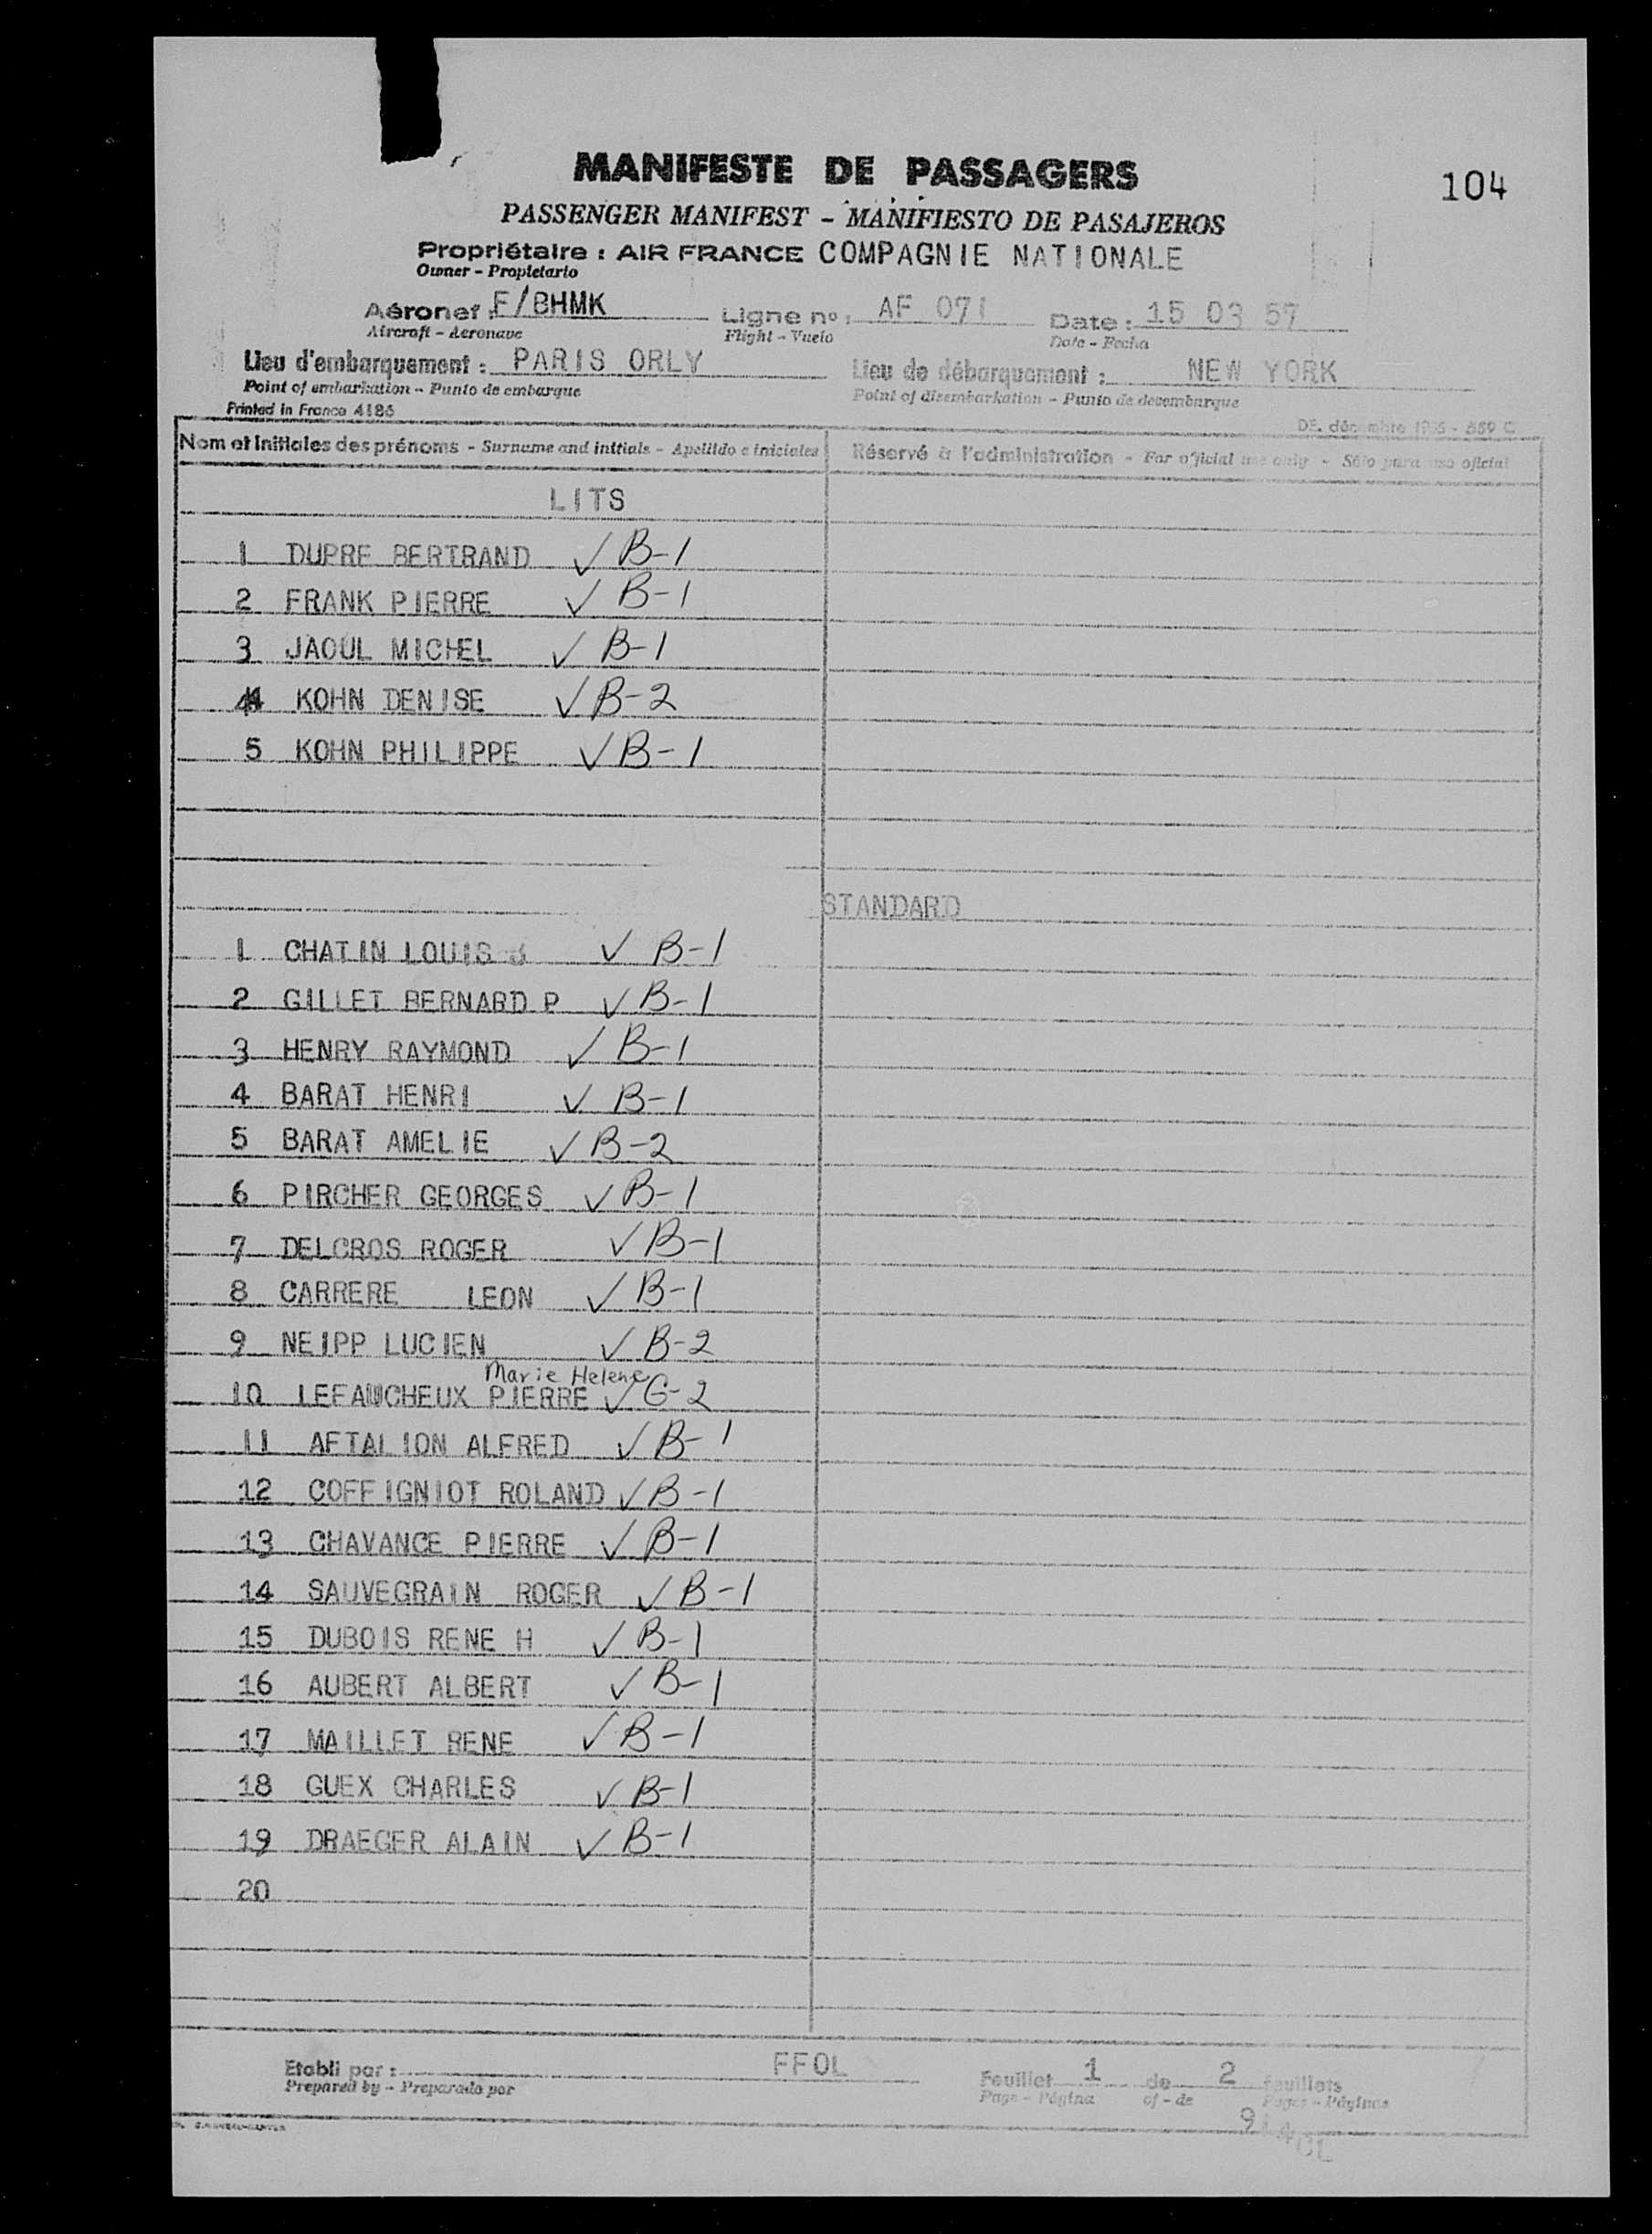 MANIFESTE DE PASSAGERS
104
PASSENGER MANIFEST - MANIFIESTO DE PASAJEROS
Propriétaire : AIR FRANCE COMPAGNIE NATIONALE
Owner - Propietario
Aéronef : F/BHMK Ligne nº : AF 071 Date : 15 03 57
Aircraft - Aeronave Flight - Vuelo Date - Fecha
Lieu d'embarquement : PARIS ORLY Lieu de débarquement : NEW YORK
Point of embarkation - Punto de embarque Point of disembarkation - Punto de desembarque
Printed in France 4186
DE. décembre - 559 C
Nom et initiales des prénoms - Surname and initials - Apellido e iniciales Réservé à l'administration - For official use only - Sólo para uso oficial
LITS
1 DUPRE BERTRAND ✓ B-1
2 FRANK PIERRE ✓ B-1
3 JAOUL MICHEL ✓ B-1
4 KOHN DENISE ✓ B-2
5 KOHN PHILIPPE ✓ B-1
STANDARD
1 CHATIN LOUIS ✓ B-1
2 GILLET BERNARD P ✓ B-1
3 HENRY RAYMOND ✓ B-1
4 BARAT HENRI ✓ B-1
5 BARAT AMELIE ✓ B-2
6 PIRCHER GEORGES ✓ B-1
7 DELCROS ROGER ✓ B-1
8 CARRERE LEON ✓ B-1
9 NEIPP LUCIEN ✓ B-2
Marie Helene
10 LEFAUCHEUX PIERRE ✓ G-2
11 AFTALION ALFRED ✓ B-1
12 COFFIGNIOT ROLAND ✓ B-1
13 CHAVANCE PIERRE ✓ B-1
14 SAUVEGRAIN ROGER ✓ B-1
15 DUBOIS RENE H ✓ B-1
16 AUBERT ALBERT ✓ B-1
17 MAILLET RENE ✓ B-1
18 GUEX CHARLES ✓ B-1
19 DRAEGER ALAIN ✓ B-1
20
Etabli par : FFOL Feuillet 1 de 2 feuillets
Prepared by - Preparado por Page - Página of - de Pages - Páginas